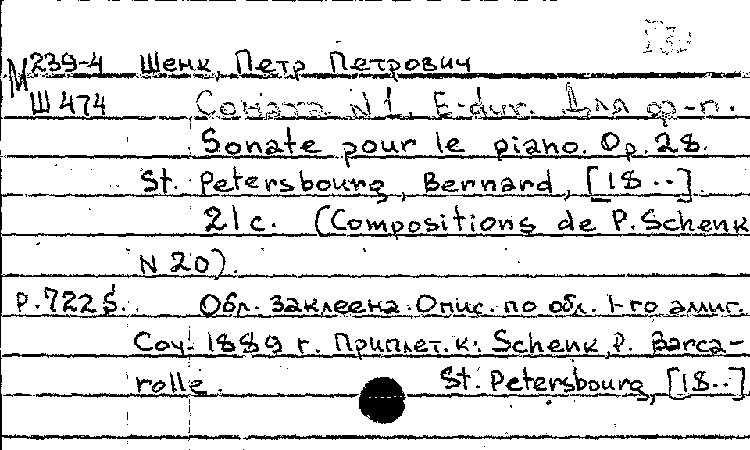 М 239-4 Шенк, Петр Петрович
Ш 474 Соната N 1, E-dur. Для ф-п.
Sonate pour le piano. Op. 28.
St. Petersbourg, Bernard, [18 ..].
21 c. (Compositions de P. Schenk
N 20).
Р. 722 Обл. заклеена. Опис. по обл. 1-го
Соч. 1889 г. Приплет. к: Schenk, P. Barca-
rolle. St. Petersbourg, [18..]